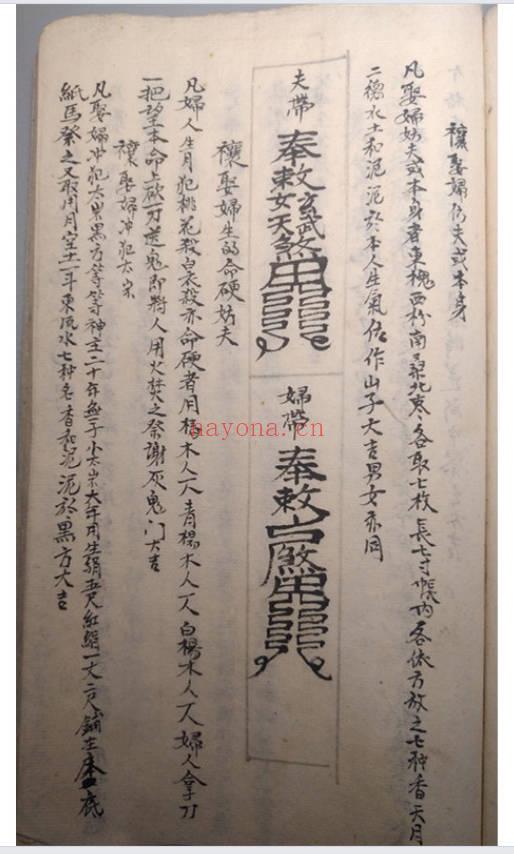 禳娶婦妨夫或本身
凡娶婦妨夫或本身者東槐西枌南桑北棗各取七枚長七寸帳內各依方放之七种香天月
二德水土和泥泥於本人生氣位作山子大吉男女亦同
夫帶
奉敕玄武女天煞
婦帶
奉敕
禳娶婦生的命硬妨夫
凡婦人生月犯桃花殺白衣殺亦命硬者用楊木人一人青楊木人一人白楊木人一人婦人拿刀
一把望本命上砍刀送鬼即將人用火焚之祭謝灰鬼門大吉
禳娶婦冲犯太歲
凡娶婦冲犯太歲黑方等神主二十年無子小太歲六年用生絹五尺紅絹一丈二尺鋪在床底
紙馬祭之又取用月空土一斗東流水七种名香和泥泥於黑方大吉
nayona.cn